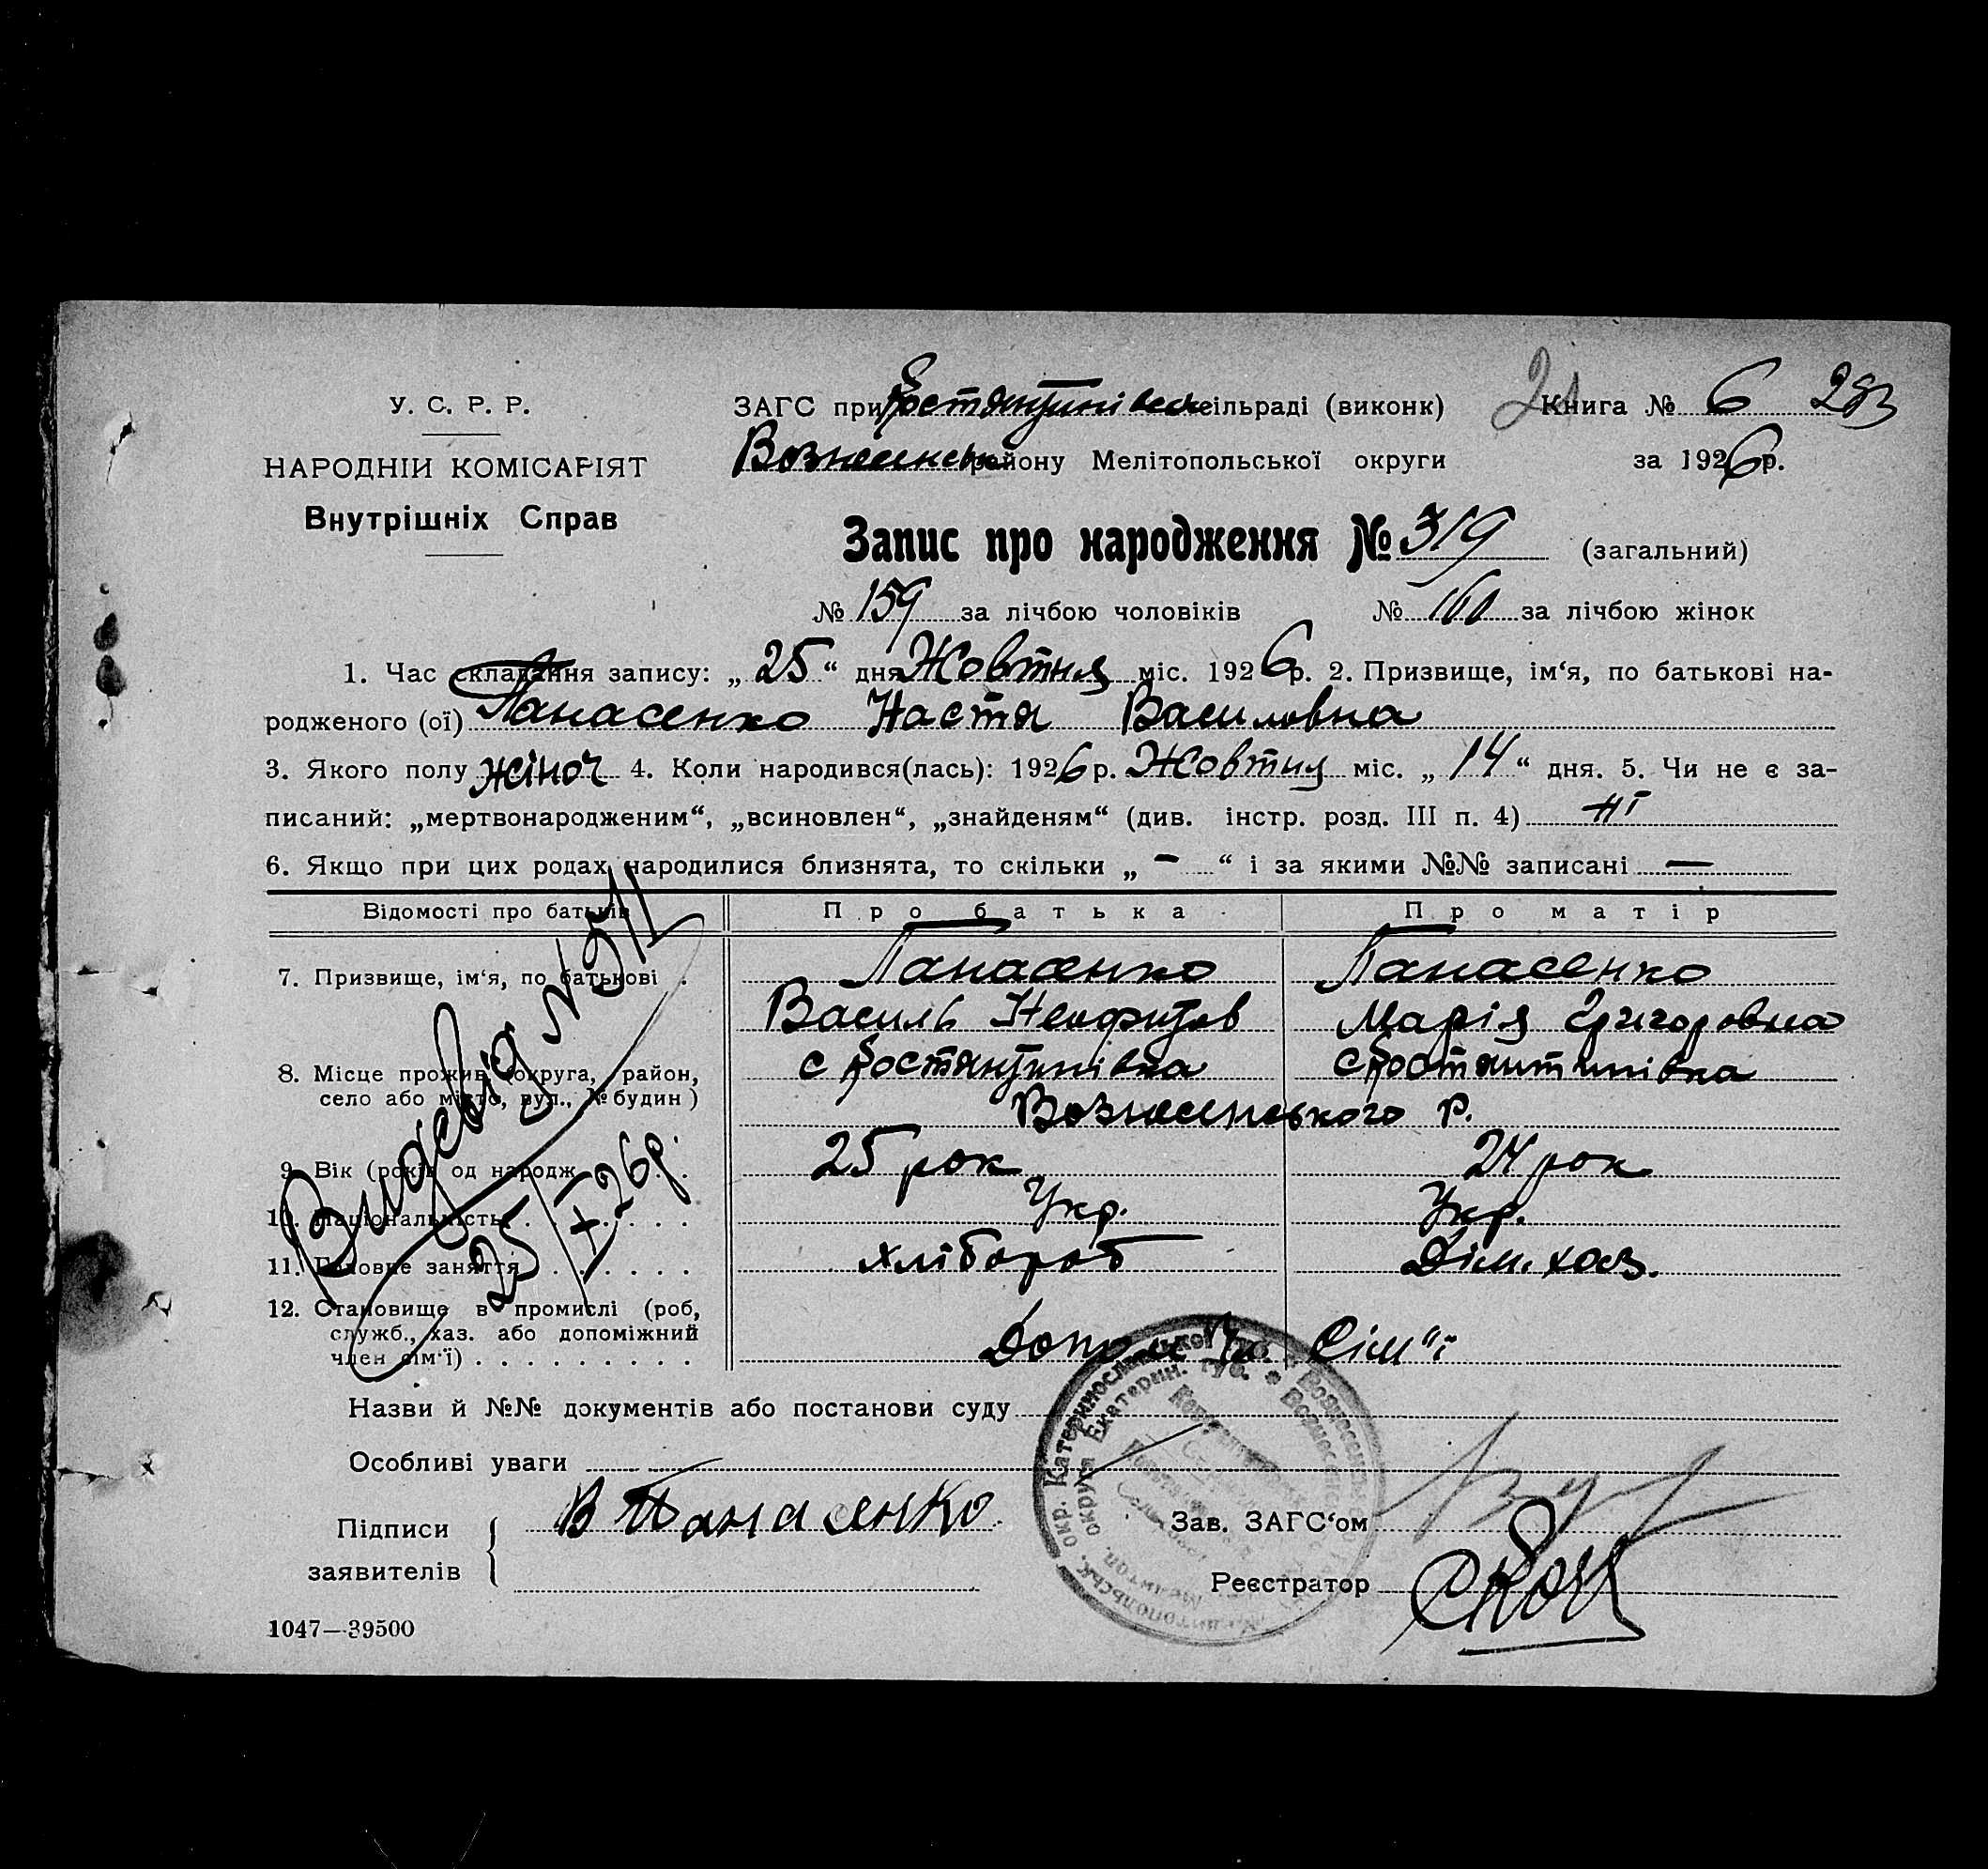 У. С. Р. Р.
НАРОДНІЙ КОМІСАРІЯТ
Внутрішніх Справ
ЗАГС при Костянтинівск сільраді (виконк) Книга № 6 283
Вознесенськ району Мелітопольської округи за 1926 р.
Запис про народження № 319 (загальний)
№ 159 за лічбою чоловіків № 160 за лічбою жінок
1. Час складання запису: „ 25 “ дня Жовтня міс. 1926 р. 2. Призвище, ім‘я, по батькові на-
родженого (ої) Панасенко Настя Василовна
3. Якого полу жіноч 4. Коли народився(лась): 1926 р. Жовтня міс. „ 14 “ дня. 5. Чи не є за-
писаний: „мертвонародженим“, „всиновлен“, „знайденям“ (див. інстр. розд. III п. 4) ні
6. Якщо при цих родах народилися близнята, то скільки „ – “ і за якими №№ записані —
Відомості про батьків Про батька Про матір
7. Призвище, ім‘я, по батькові . Панасенко Панасенко
Василь Неофитов Марія Григоровна
8. Місце прожив (округа, район, с Костянтинівка с Костянтинівка
село або місто, вул., № будин) Вознесенського р.
9. Вік (років од народж. 25 рок 24 рок
10. Національність Укр. Укр.
11. Головне заняття хлібороб Дім. хаз.
12. Становище в промислі (роб,
служб., хаз. або допоміжний
член сім‘ї) Допом. Чл. Сім"ї
Видсвід № 971
25/X 26р.
Назви й №№ документів або постанови суду
Особливі уваги
Підписи
заявителів
В Панасенко
Зав. ЗАГС‘ом
Реєстратор
1047—39500